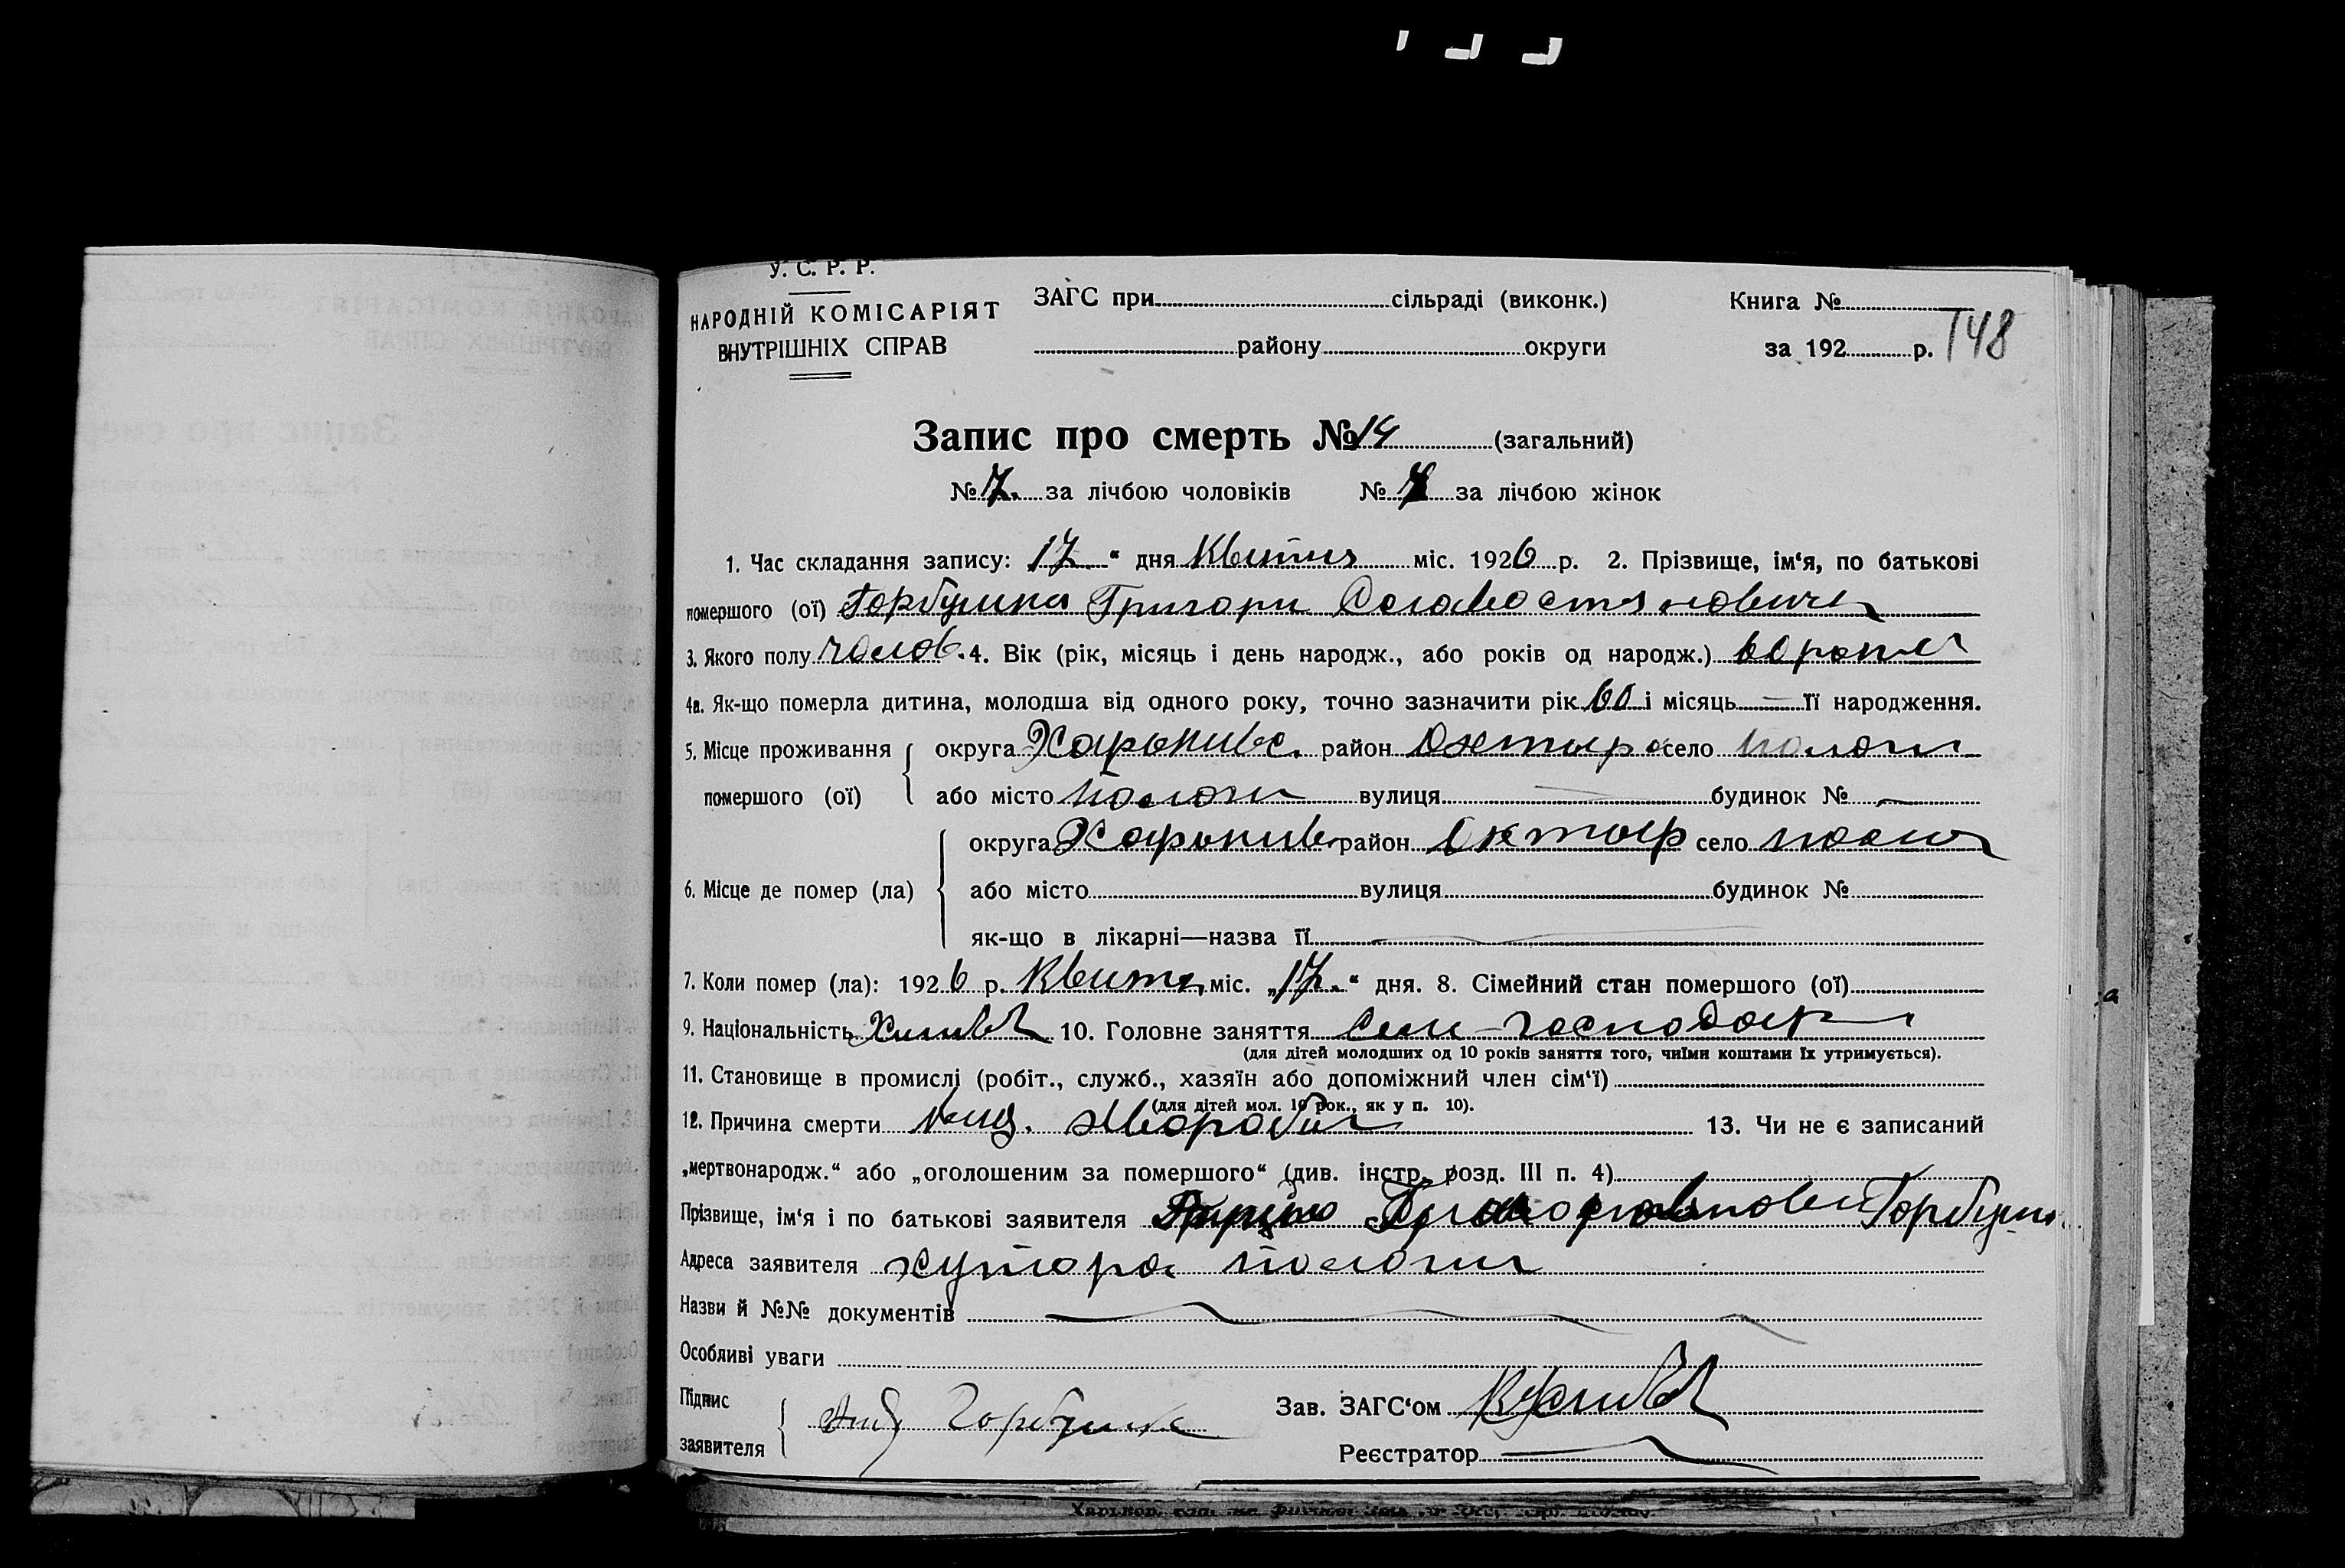 У. С. Р. Р.
НАРОДНІЙ КОМІСАРІЯТ
ВНУТРІШНІХ СПРАВ
ЗАГС при сільраді (виконк.)
району округи
Книга №
за 192 р.
148
Запис про смерть № 14 (загальний)
№ 7. за лічбою чоловіків № 7 за лічбою жінок
1. Час складання запису: 17 “ дня Квитня міс. 1926 р. 2. Прізвище, ім‘я, по батькові
помершого (ої) Горбулина Григори
3. Якого полу чолов. 4. Вік (рік, місяць і день народж., або років од народж.) 60
4а. Як-що померла дитина, молодша від одного року, точно зазначити рік 60 і місяць — її народження.
5. Місце проживання помершого (ої) округа Харькивс. район Охтыр село пологи
або місто пологи вулиця — будинок № —
6. Місце де помер (ла) округа Харькив район Охтыр село
або місто вулиця будинок №
як-що в лікарні—назва її
7. Коли помер (ла): 1926 р. Квитн міс. „17.“ дня. 8. Сімейний стан помершого (ої)
9. Національність 10. Головне заняття Сель-господар
(для дітей молодших од 10 років заняття того, чиїми коштами їх утримується).
11. Становище в промислі (робіт., служб., хазяїн або допоміжний член сім‘ї)
(для дітей мол. 10 рок., як у п. 10).
12. Причина смерти 13. Чи не є записаний
„мертвонародж.“ або „оголошеним за помершого“ (див. інстр. розд. III п. 4)
Прізвище, ім‘я і по батькові заявителя
Адреса заявителя хутора пологи
Назви й №№ документів
Особливі уваги
Підпис заявителя
Зав. ЗАГС‘ом
Реєстратор